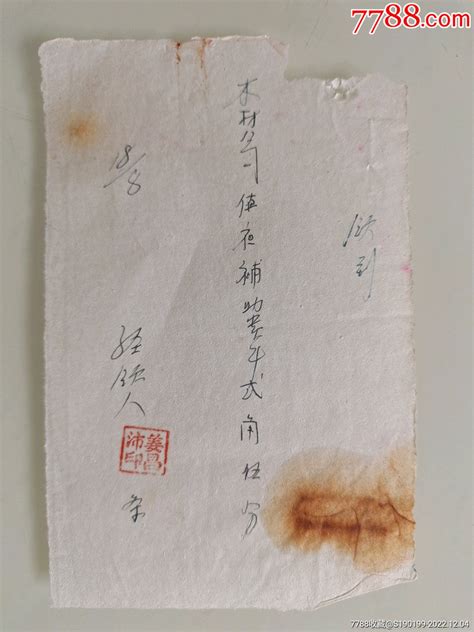 7788.com
领到
木材公司值夜补助费弍角伍分
18/8
经领人
姜昌
沛印
条
7788收藏@S190199-2022.12.04